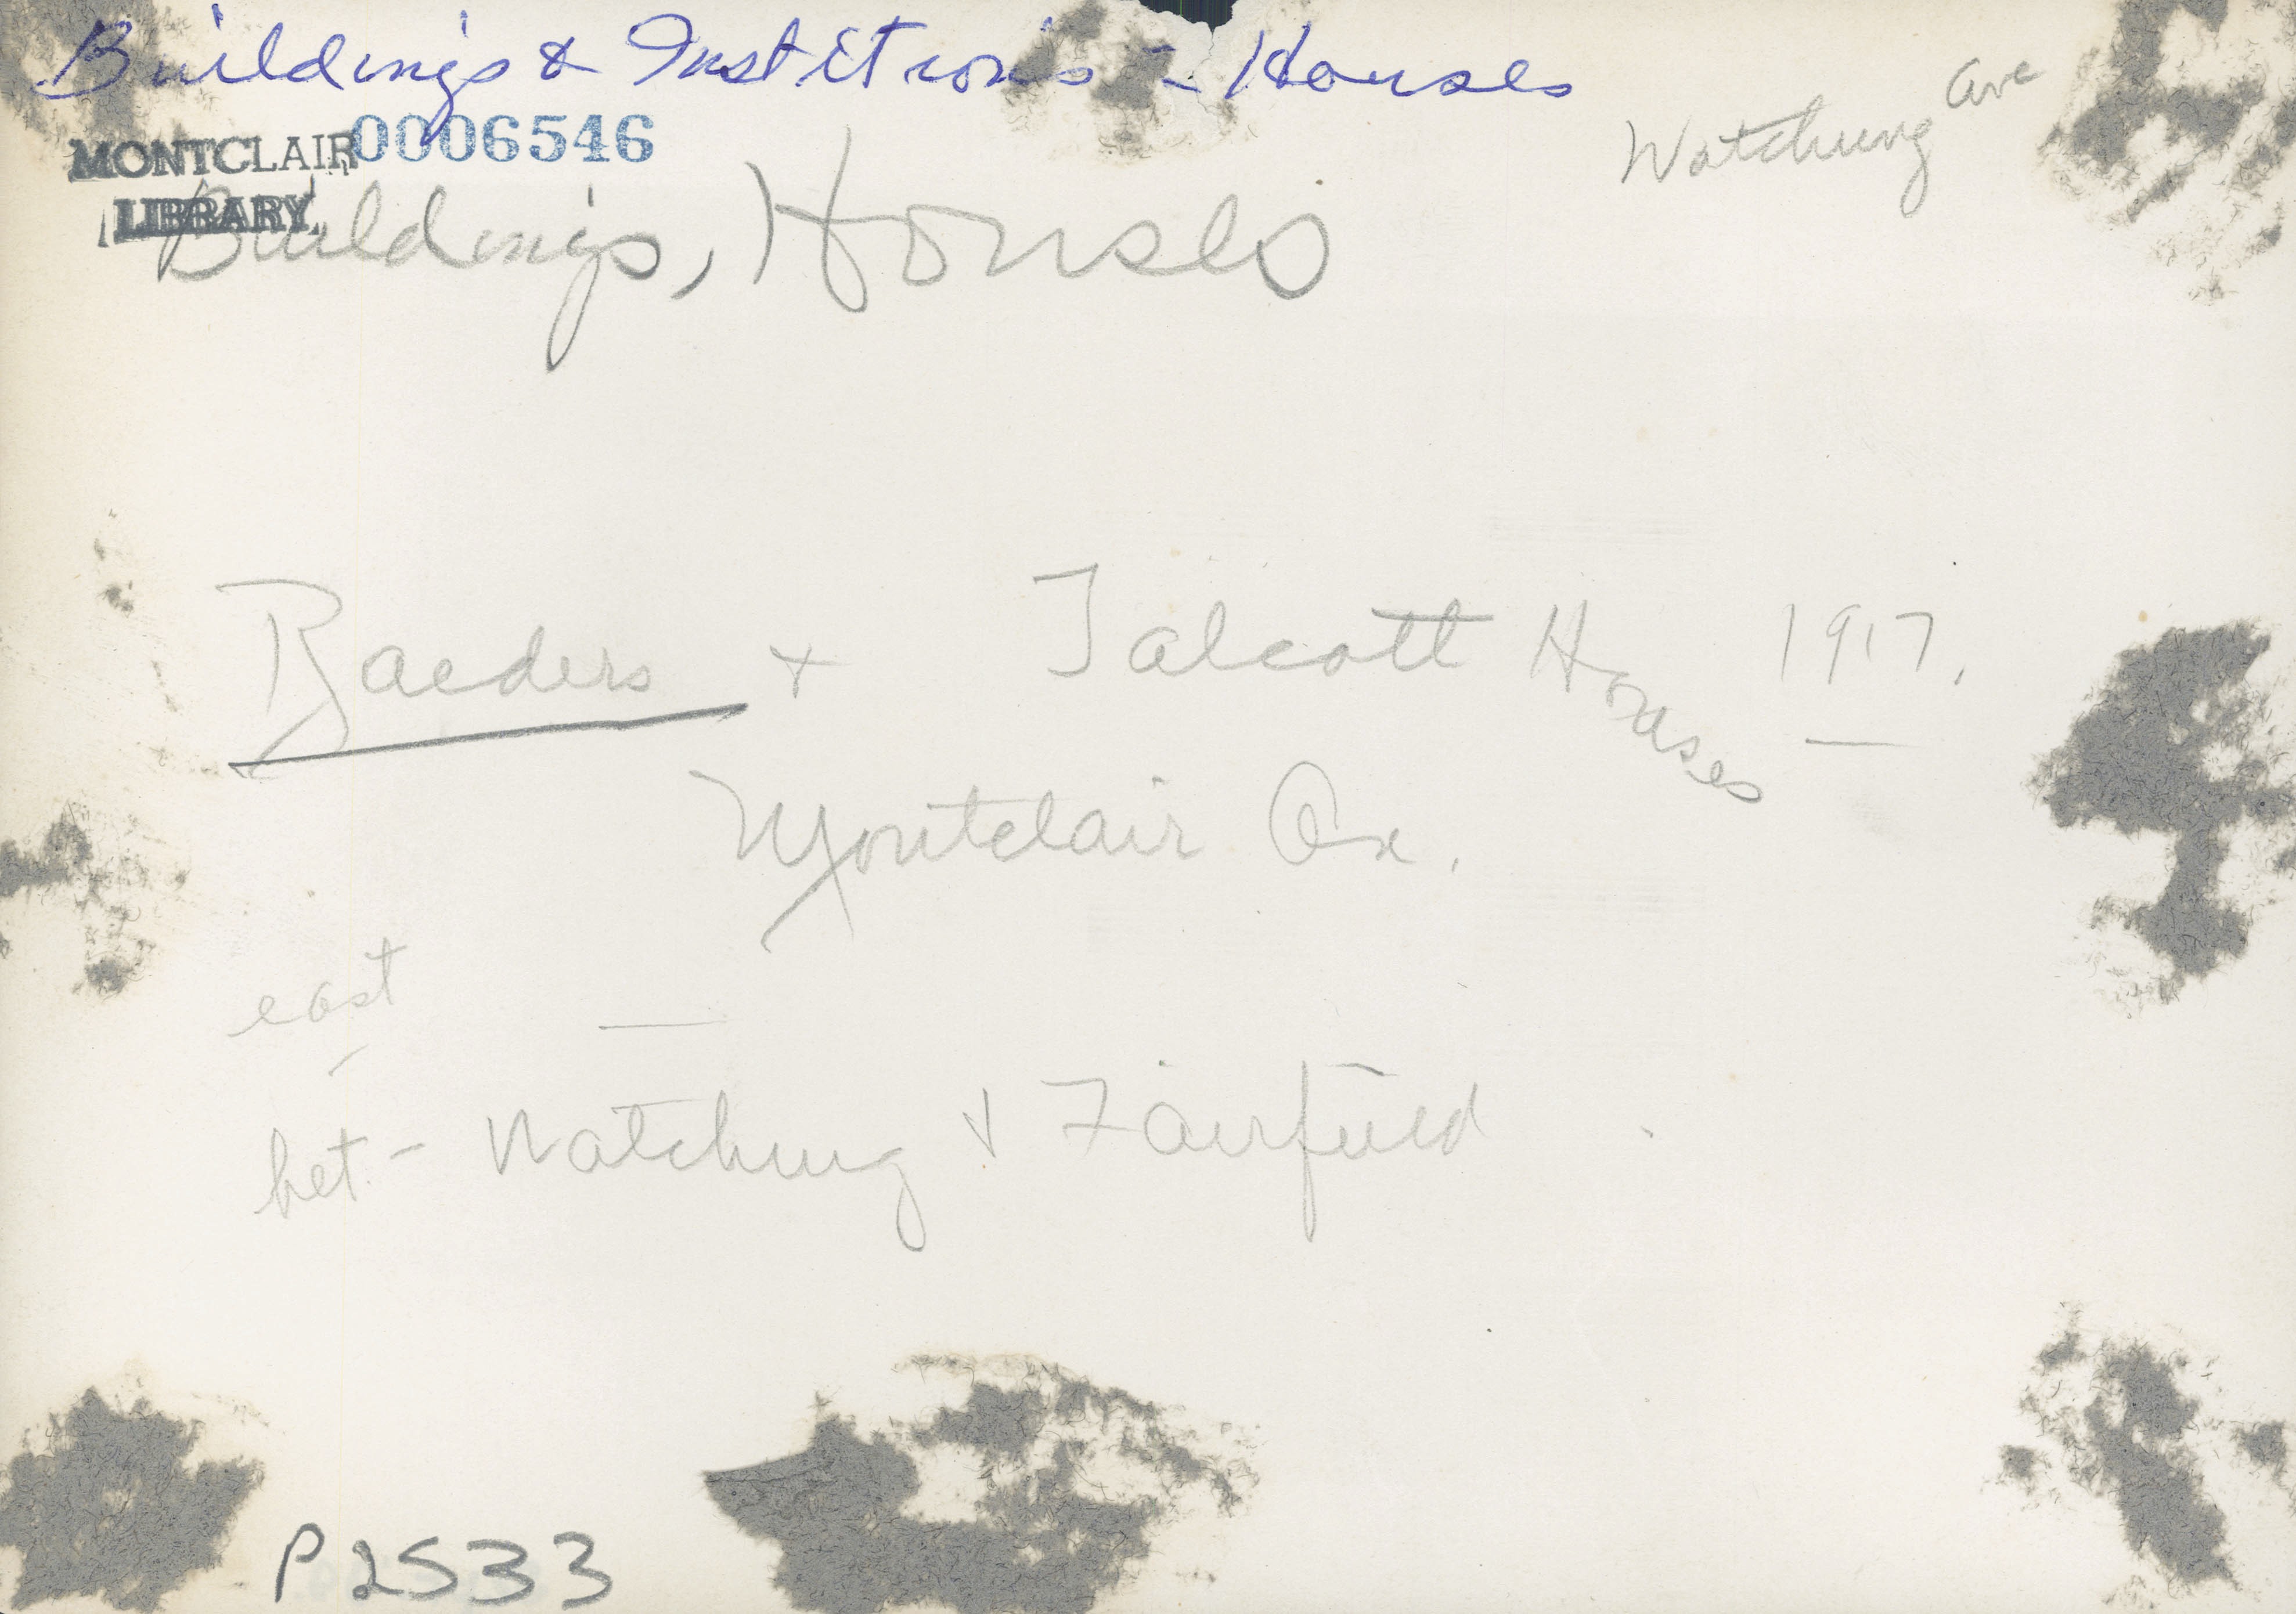 Buildings & Instit​ions - Houses
Watchung Ave
MONTCLAIR 0006546
LIBRARY
Buildings, Houses
Raeders + Talcott Houses 1917.
Montclair Av.
east
bet. - Watchung + Fairfield
P2533